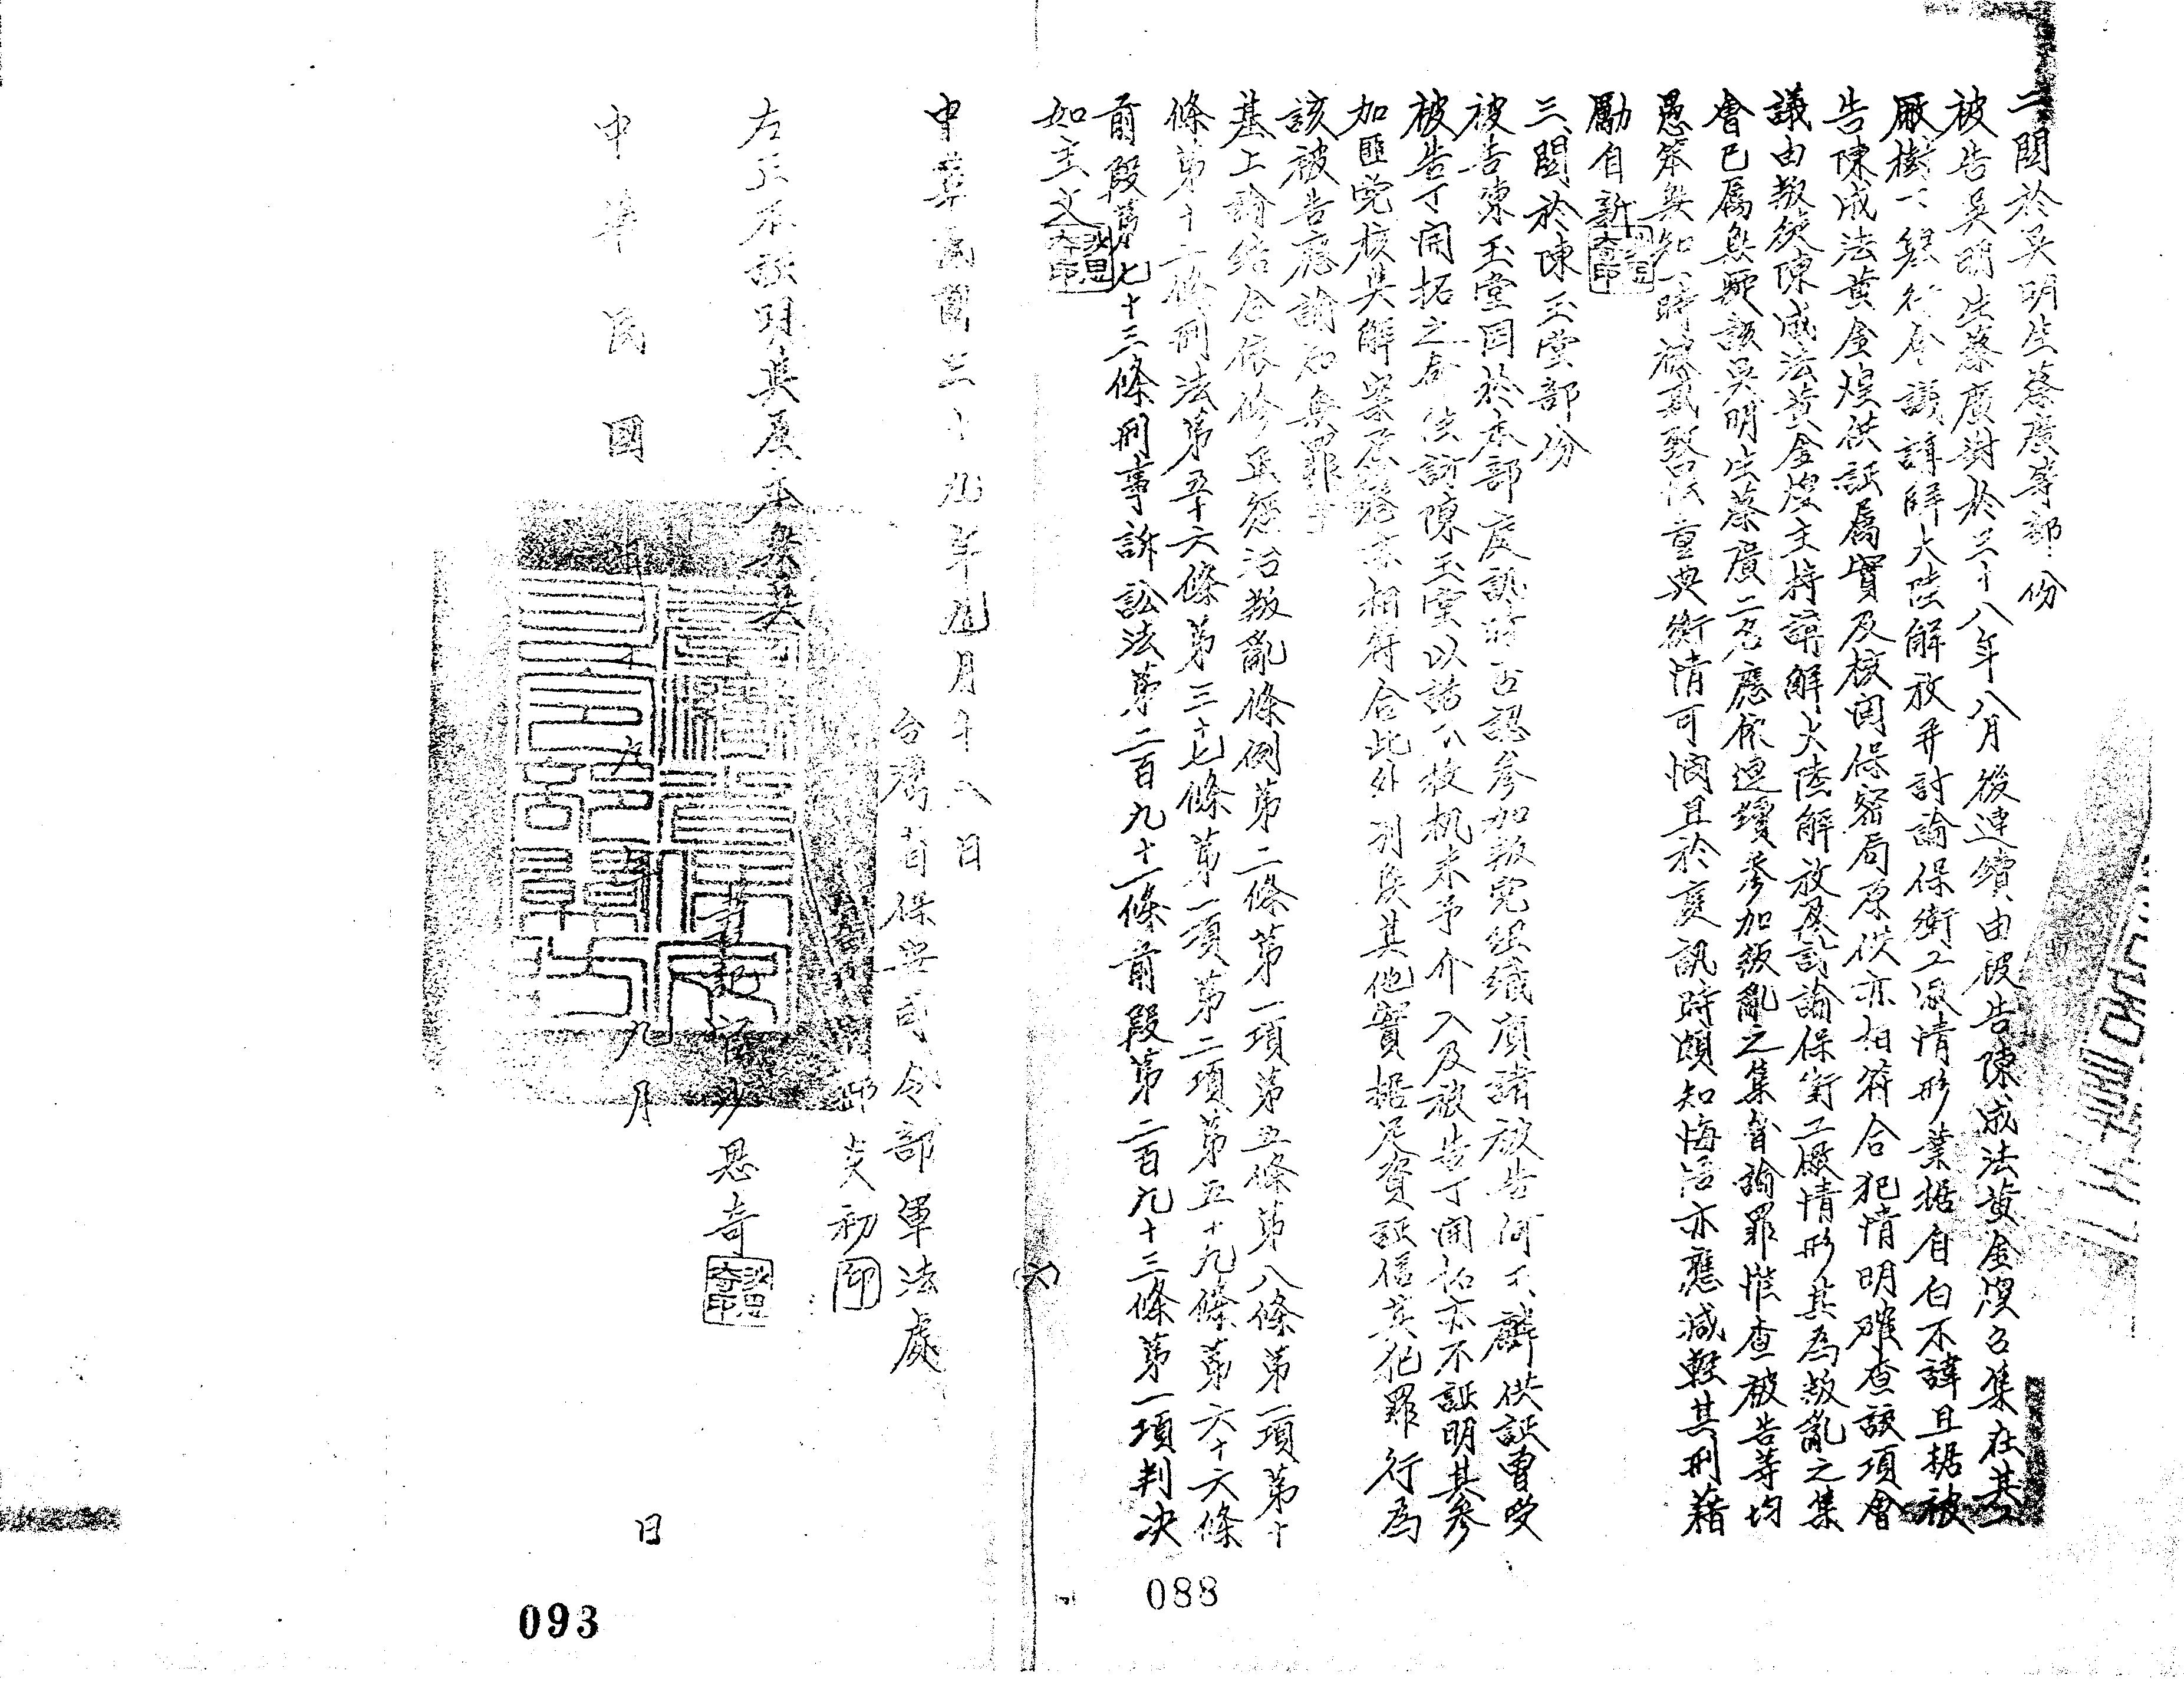 二、關於吳明生蔡廣等部份
被告吳明生蔡廣對於三十八年八月後連續由被告陳成法黃金煌召集在其工
廠樹下舉行會議講解大陸解放并討論保衛工廠情形業据自白不諱且据被
告陳成法黃金煌供証屬實及核閱保密局原供亦相符合犯情明確查該項會
議由叛徒陳成法黃金煌主持講解大陸解放及討論保衛工廠情形其為叛亂之集
會已屬無疑該吳明生蔡廣二名應依連續參加叛亂之集會論罪惟查被告等均
愚笨無知一時被惑致罹重典衡情可憫且於庭訊時頗知悔悟亦應減輕其刑藉
勵自新
三、關於陳玉堂部份
被告陳玉堂因於本部庭訊時否認參加叛亂組織質諸被告何天麟供証曾受
被告丁開拓之命往訪陳玉堂以話不投机未予介入及被告丁開拓亦不証明其參
加匪党核其解案原供亦相符合此外別無其他實据足資証信其犯罪行為
該被告應諭知無罪
基上論結合依修正懲治叛亂條例第二條第一項第五條第八條第一項第十
條第十二條刑法第五十六條第三十七條第一項第二項第五十九條第六十六條
前段第七十三條刑事訴訟法第二百九十一條前段第二百九十三條第一項判決
如主文
中華民國三十九年九月十八日
台灣省保安司令部軍法處
邱炎初 印
左正本証明與原本無異
書記官沙思奇
中華民國三十九年九月 日
(六)
088
093